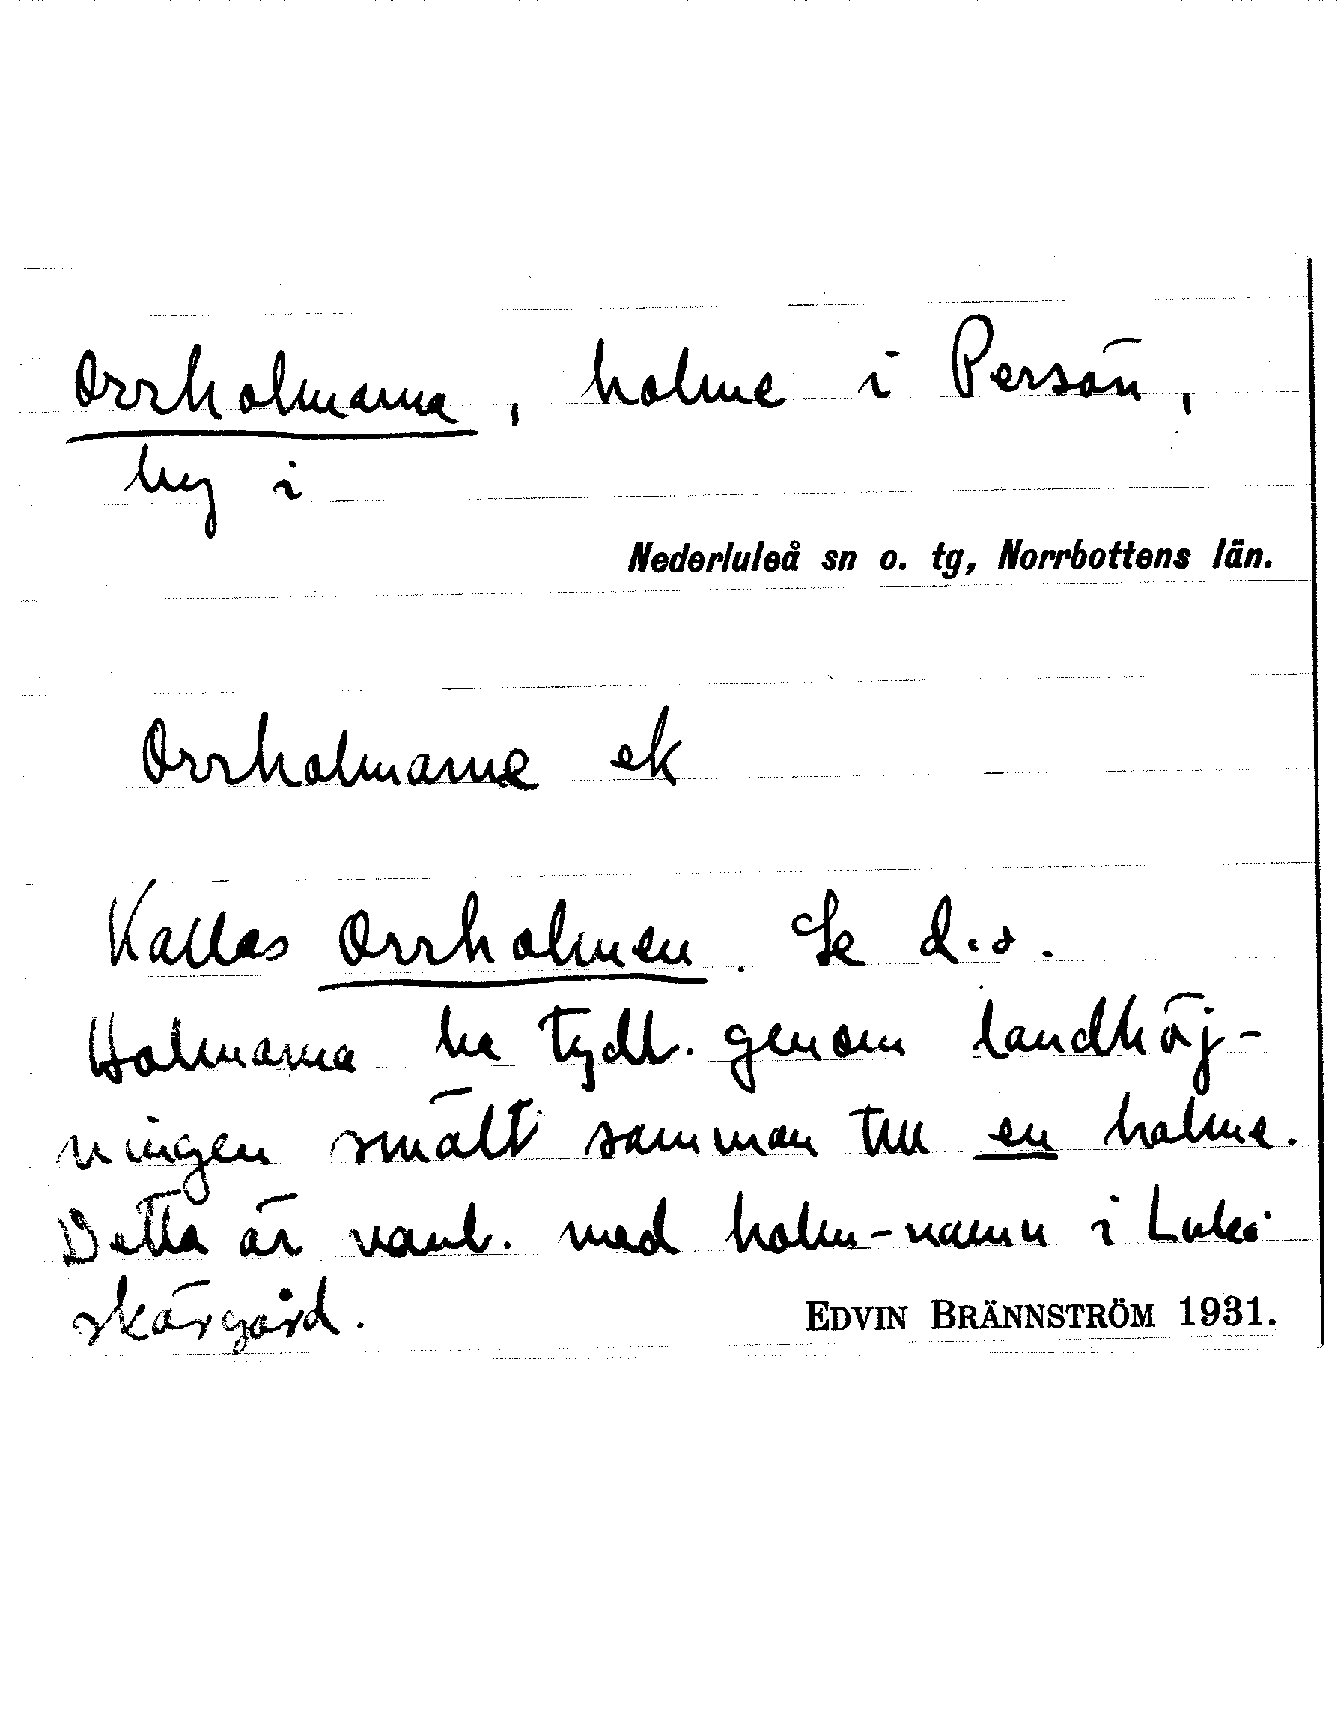 Orrholmarna, holme i Persön,
by i
Nederluleå sn o. tg, Norrbottens län.
Orrholmarne ek
Kallas Orrholmen. Se d.o.
Holmarna ha tydl. genom landhöj-
ningen smält samman till en holme.
Detta är vanl. med holm-namn i Luleå
skärgård.
EDVIN BRÄNNSTRÖM 1931.